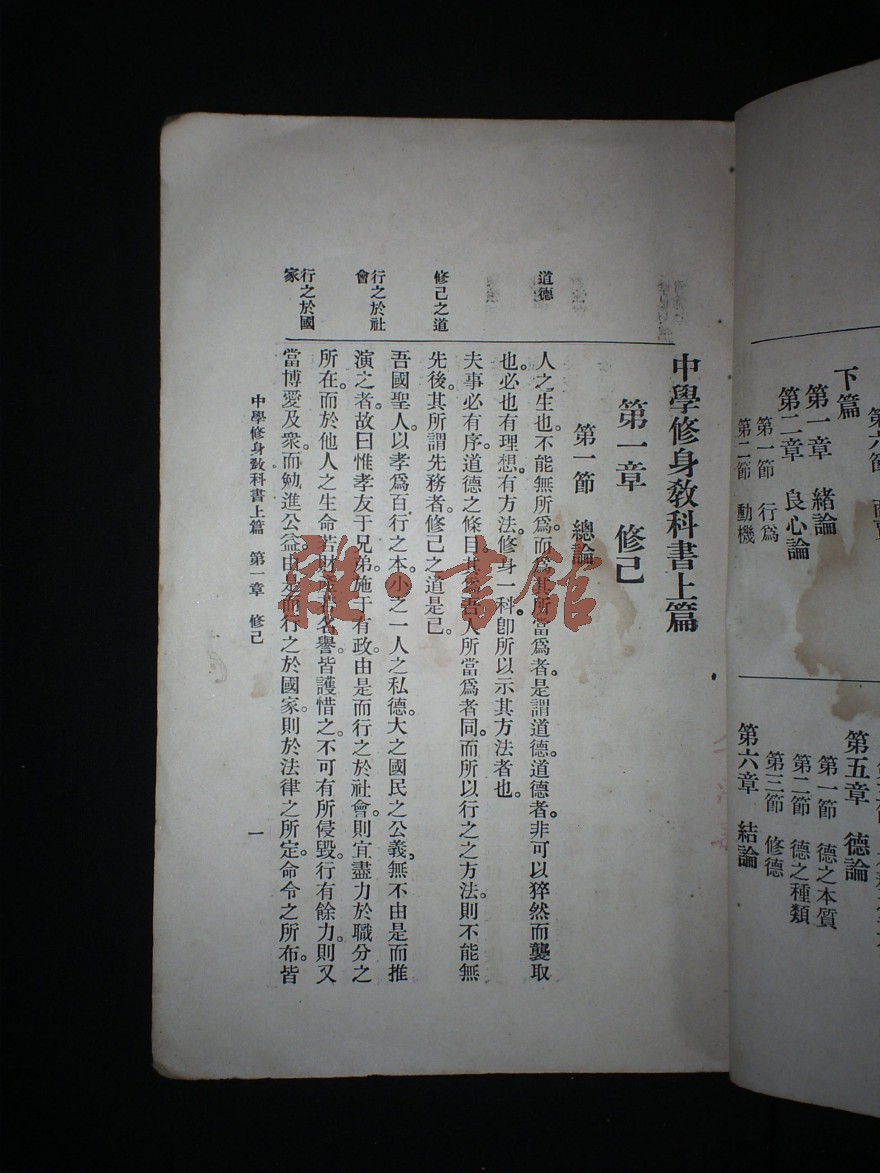 下篇
第一章 緒論
第二章 良心論
第一節 行爲
第二節 動機
第五章 德論
第一節 德之本質
第二節 德之種類
第三節 修德
第六章 結論
中學修身敎科書上篇
第一章 修己
第一節 總論
道德
人之生也。不能無所爲。而爲其所當爲者。是謂道德。道德者。非可以猝然而襲取
也。必也有理想。有方法。修身一科。卽所以示其方法者也。
夫事必有序。道德之條目。其爲吾人所當爲者同。而所以行之之方法。則不能無
修己之道
先後。其所謂先務者。修己之道是已。
吾國聖人。以孝爲百行之本。小之一人之私德。大之國民之公義。無不由是而推
行之於社會
演之者。故曰惟孝友于兄弟。施于有政。由是而行之於社會。則宜盡力於職分之
所在。而於他人之生命若財產若名譽。皆護惜之。不可有所侵毀。行有餘力。則又
行之於國家
當博愛及衆。而勉進公益。由是而行之於國家。則於法律之所定。命令之所布。皆
中學修身敎科書上篇 第一章 修己
一
雜·書館